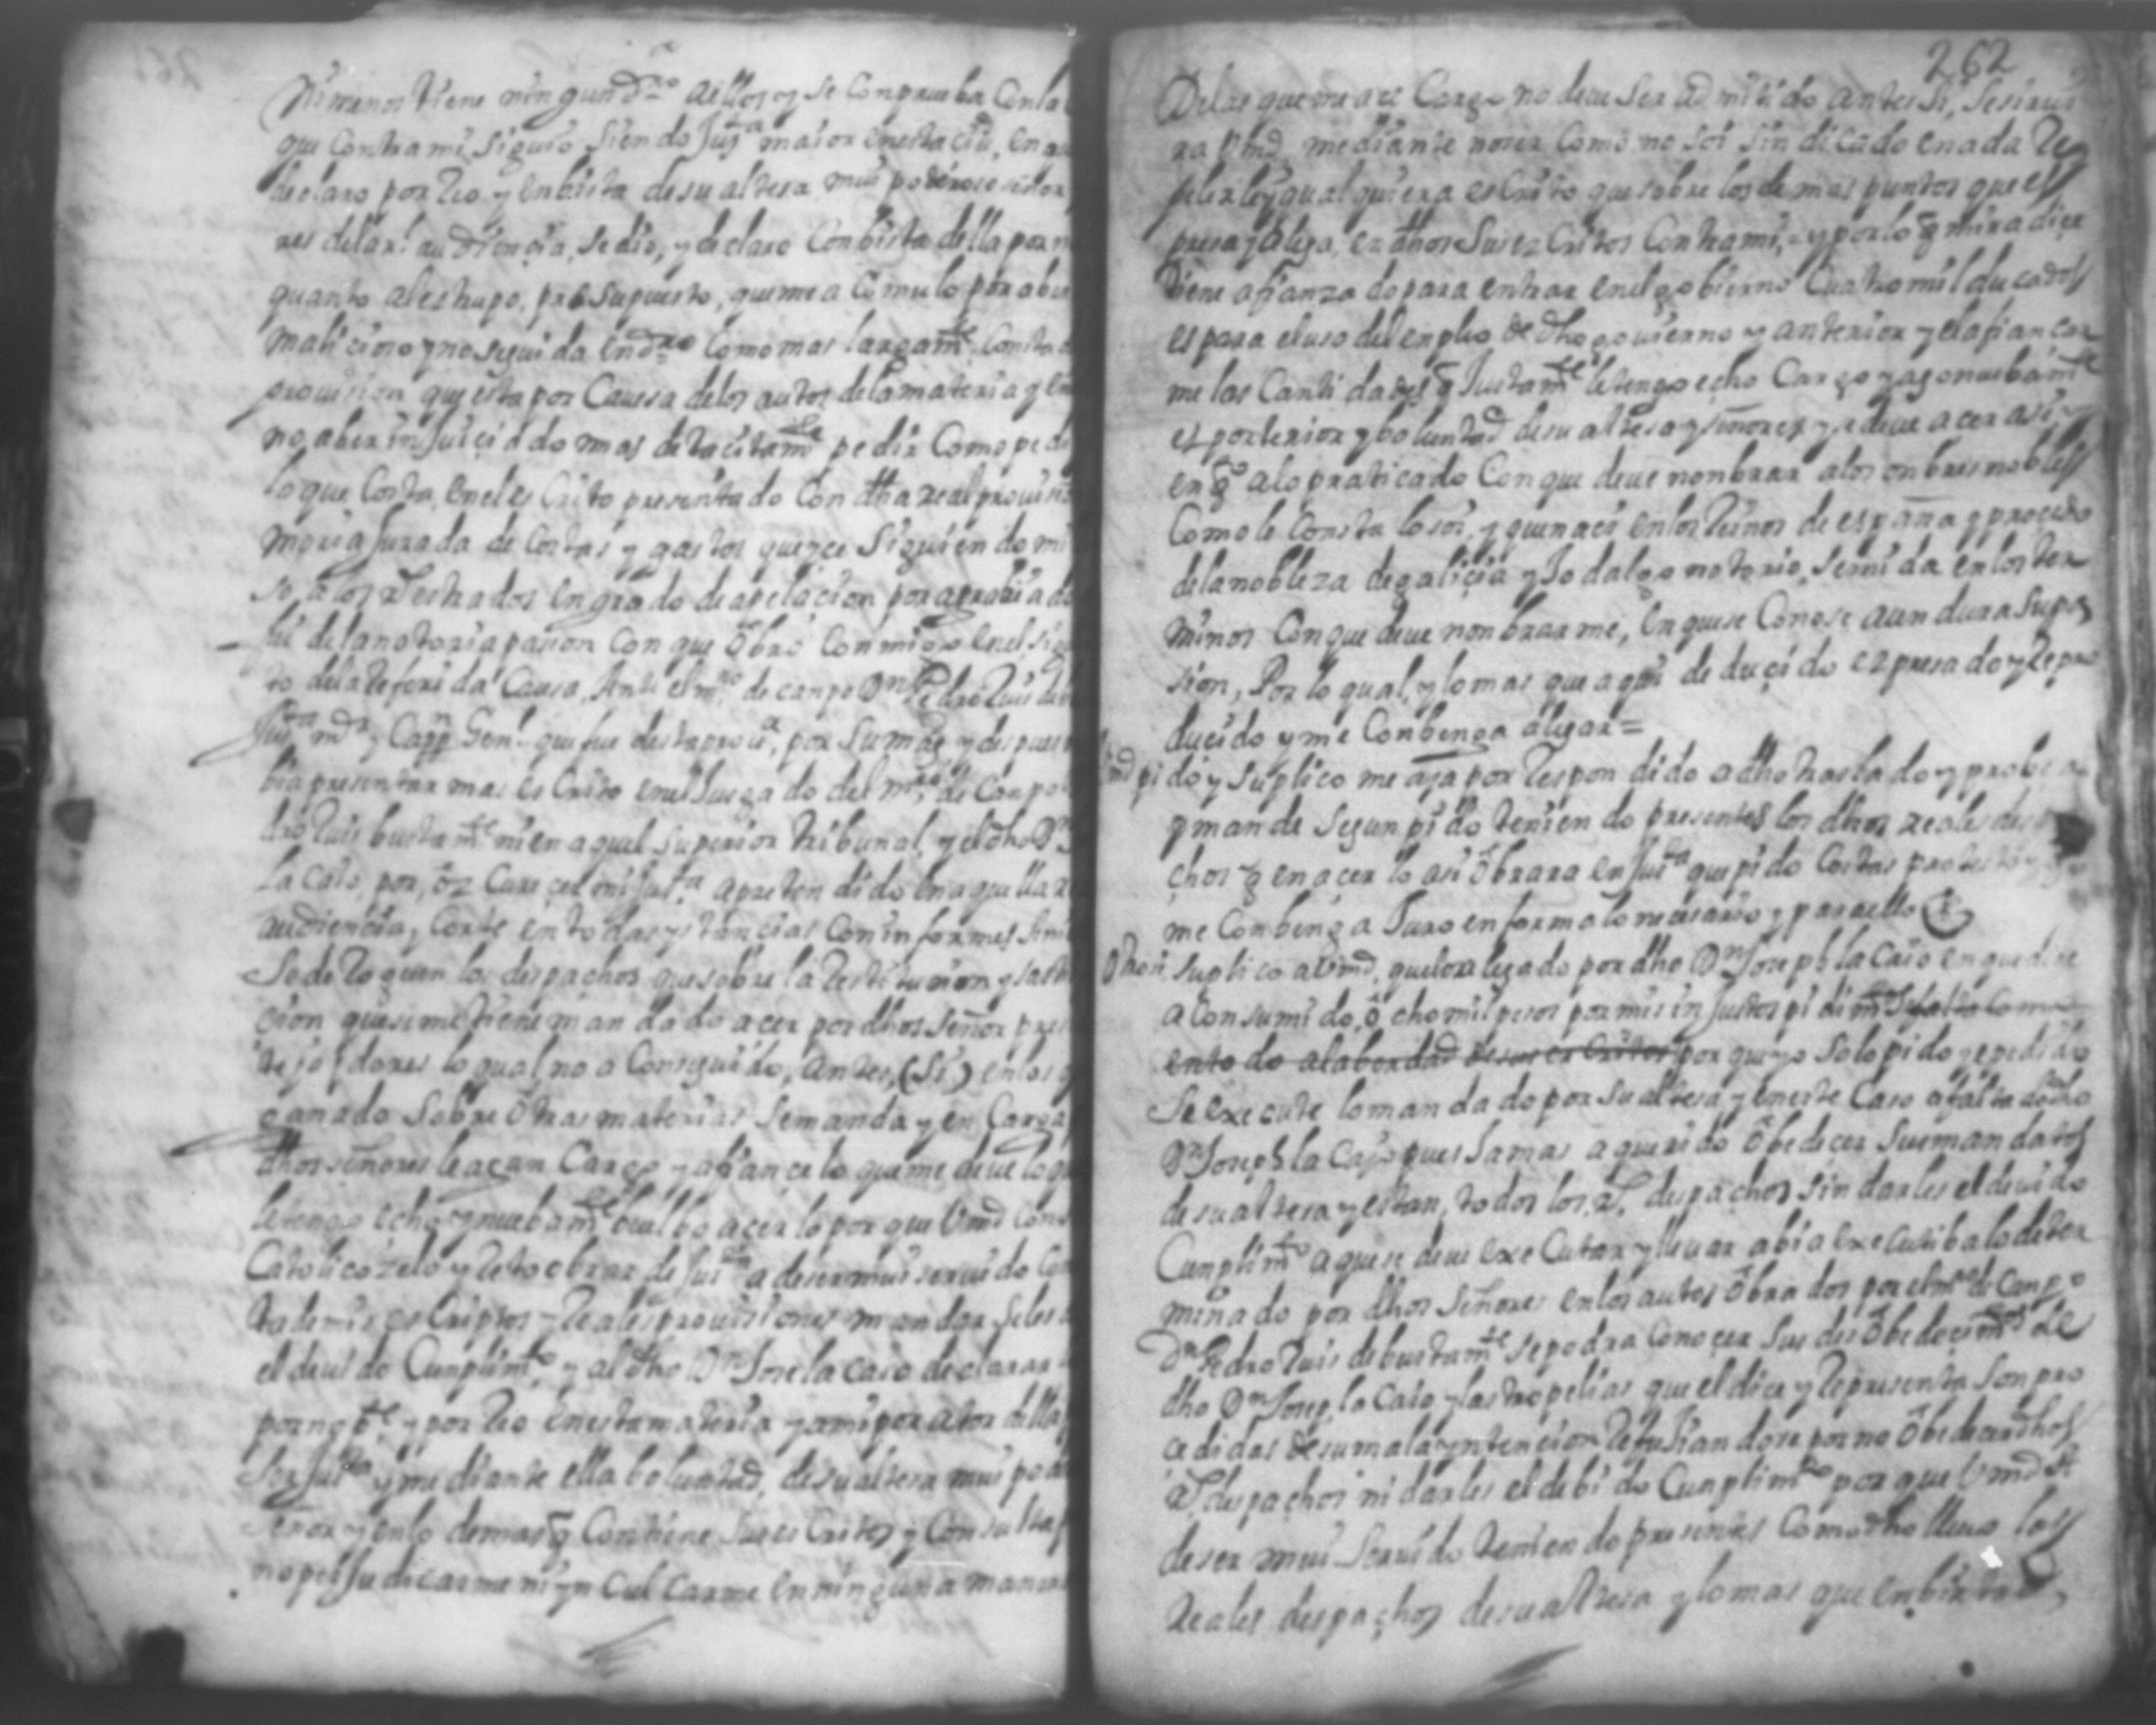 ni menos tiene ningun dro. a ellos y se conprueba con la
que contra mi siguio siendo Justa maior en esta ciu, en
declaro por Reo y en bista de su altesa mui poderoso señor
res de la rl. audiencia, se dio, y declaro con bista della por
quanto al estrupo, pre supuesto, que me a comulo por abu
malicioso y no seguida en dro como mas largamte consta
provision que esta por causa de los autos de la materia y en
no aber in juiciado mas de tacitamte pedir como pedi
lo que costa en el es crito presentado con dha real provisio
moria jurada de costas y gastos que yce siguiendo mi
se, a los Restrados en grado de apelacion por agrabiado
fui de la notoria pasion con que obro conmigo en el sig
to de la Referida causa, Ante el mro de canpo Dn Pedro Luis de
Justa mor y Capn Genl. que fue desta prova, por su magd y despues
bia presentar mas es crito en el Jusgado del mro de Canpo
dro Luis bustamte ni en aquel superior tribunal, y el dho Dn
la caio, por, oz curecer mi justa a pretendido en aquella r
audiencia, y corte en todas ystancias con informes sini
se deroguen los despachos que sobre la Restitucion y satis
cion que se me tiene mandado acer por dhos señor pres
te y oidores lo qual no a conseguido, antes, (si) en los
ganado sobre otras materias se manda y en carga
dhos señores le agan cargo y afiance lo que me deve lo q
le tengo echo y nuebamte buelbo a cer lo por que Vmd con s
Catolico zelo y Reto obrar de Justa a de ser mui servido con
ta de mis es criptos y Reales provisiones mandar se les
el devido cunplimto, y al dho Dn Jose la caio declarar
por no pte. y por Reo en esta materia y a mi por ator della
ser Justa y mediante ella boluntad, de su altesa mui pode
señor y en lo demas q contiene sus es critos y consultas
no perjudicarme ni yn culcarme en ninguna manera
262
De las que me a ce cargo no deve ser admitido antes si, se sirvi
ra Vmd, mediante no ser como no soi sindicado en nada Re
pelerle qualquiera es crito que sobre los demas puntos que es
presa y alega en dhos sus ez critos contra mi, y por lo q mira dice
tiene afianzado para entrar en el gobierno cuatro mil ducados
es para el uso del enpleo de dho govierno y anterior y el afiancar
me las cantidades q Justamte le tengo echo cargo y ago nuebamte
es posterior y boluntad de su altesa y señores y se deve acer asi y
en qto a lo praticado con que deve nonbrar a los onbres nobles
como le consta lo soi, y que naci en los Reinos de españa y procedo
de la nobleza de galicia y Jodalgo notorio, se mida en los ter
minos con que deve nonbrarme, en que se conose aun dura su pa
sion, Por lo qual, y lo mas que a qui deducido ezpresado y Repro
ducido y me conbenga alegar =
Vmd pido y suplico me aya por Respondido a dho traslado y probea
y mande segun pido teniendo presentes los dhos reales des
chos q en acer lo asi obrara en Justa que pido costas protesto y
me conbenga Juro en forma lo nesesario y para ello
Otrosi suplico a Vmd, que lo alegado por dho Dn Joseph la caio en que dise
a consumido, ocho mil pesos por mis injustos pidimtos
por que yo solo pido y e pedido
se execute lo mandado por su altesa y en este caso a faltado dho
Dn Joseph la caio pues Jamas a querido obedecer sus mandatos
de su altesa y estan, todos los Rs. despachos sin darles el devido
cunplimto a que se deve executar y llevar a bia executiba lo deter
minado por dhos señores en los autos obrados por el mro de canpo
Dn Pedro Luis de bustamte se podra conocer sus des obedecimtos de
dho Dn Josep, la caio y las tropelias que el dice y Representa son pro
cedidas de su mala yntencion Refusiandose por no obedecer dhos
Rs. despachos ni darles el debido cunplimto por que Vmd a
de ser mui servido teniendo presentes como dho llevo los
Reales despachos de su altesa y lo mas que en bista